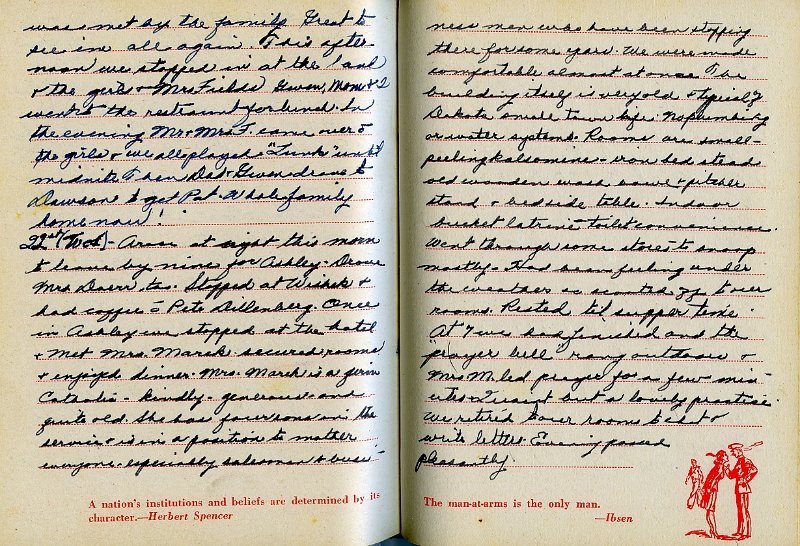 was met by the family. Great to
see im all again. This after
noon we stopped in at the land
& the girls & Mrs Fields Gwen, Mom & I
went to the restraunt for lunch. In
the evening Mr & Mrs F. came over &
the girls & we all played "Tunk" until
midnite Then Dad & Gwen drove to
Dawson to get Pat. Whole family
home now!
22nd (Wed) - Arose at eight this morn
to leave by nine for Ashley - Drove
Mrs Doerr too. Stopped at Wishek &
had coffee Pete Dillenberg. Once
in Ashley we stopped at the hotel
& met Mrs. Marek secured rooms
& enjoyed dinner. Mrs. Marek is a firm
Catholic - kindly - generous - and
quite old. She has four sons in the
service & is in a position to mother
everyone - especially salesmen & busi-
A nation's institutions and beliefs are determined by its
character.—Herbert Spencer
ness men who have been stopping
there for some years. We were made
comfortable almost at once. The
building itself is very old & typical of
Dakota small town life. No plumbing
or water systems. Rooms are small -
peeling kalsomine - iron bed stead
old wooden wash bowl & pitcher
stand & bedside table. Indoor
bucket latrine toilet convenience.
Went through some stores to snoop
mostly - Had been feeling under
the weather so scooted off to our
rooms. Rested til supper time.
At 7 we had finished and the
"prayer bell rang outdoors &
Mrs M. led prayer for a few min-
utes - Quaint but a lovely practise.
We retired to our rooms to chat &
write letters. Evening passed
pleasantly.
The man-at-arms is the only man.
—Ibsen